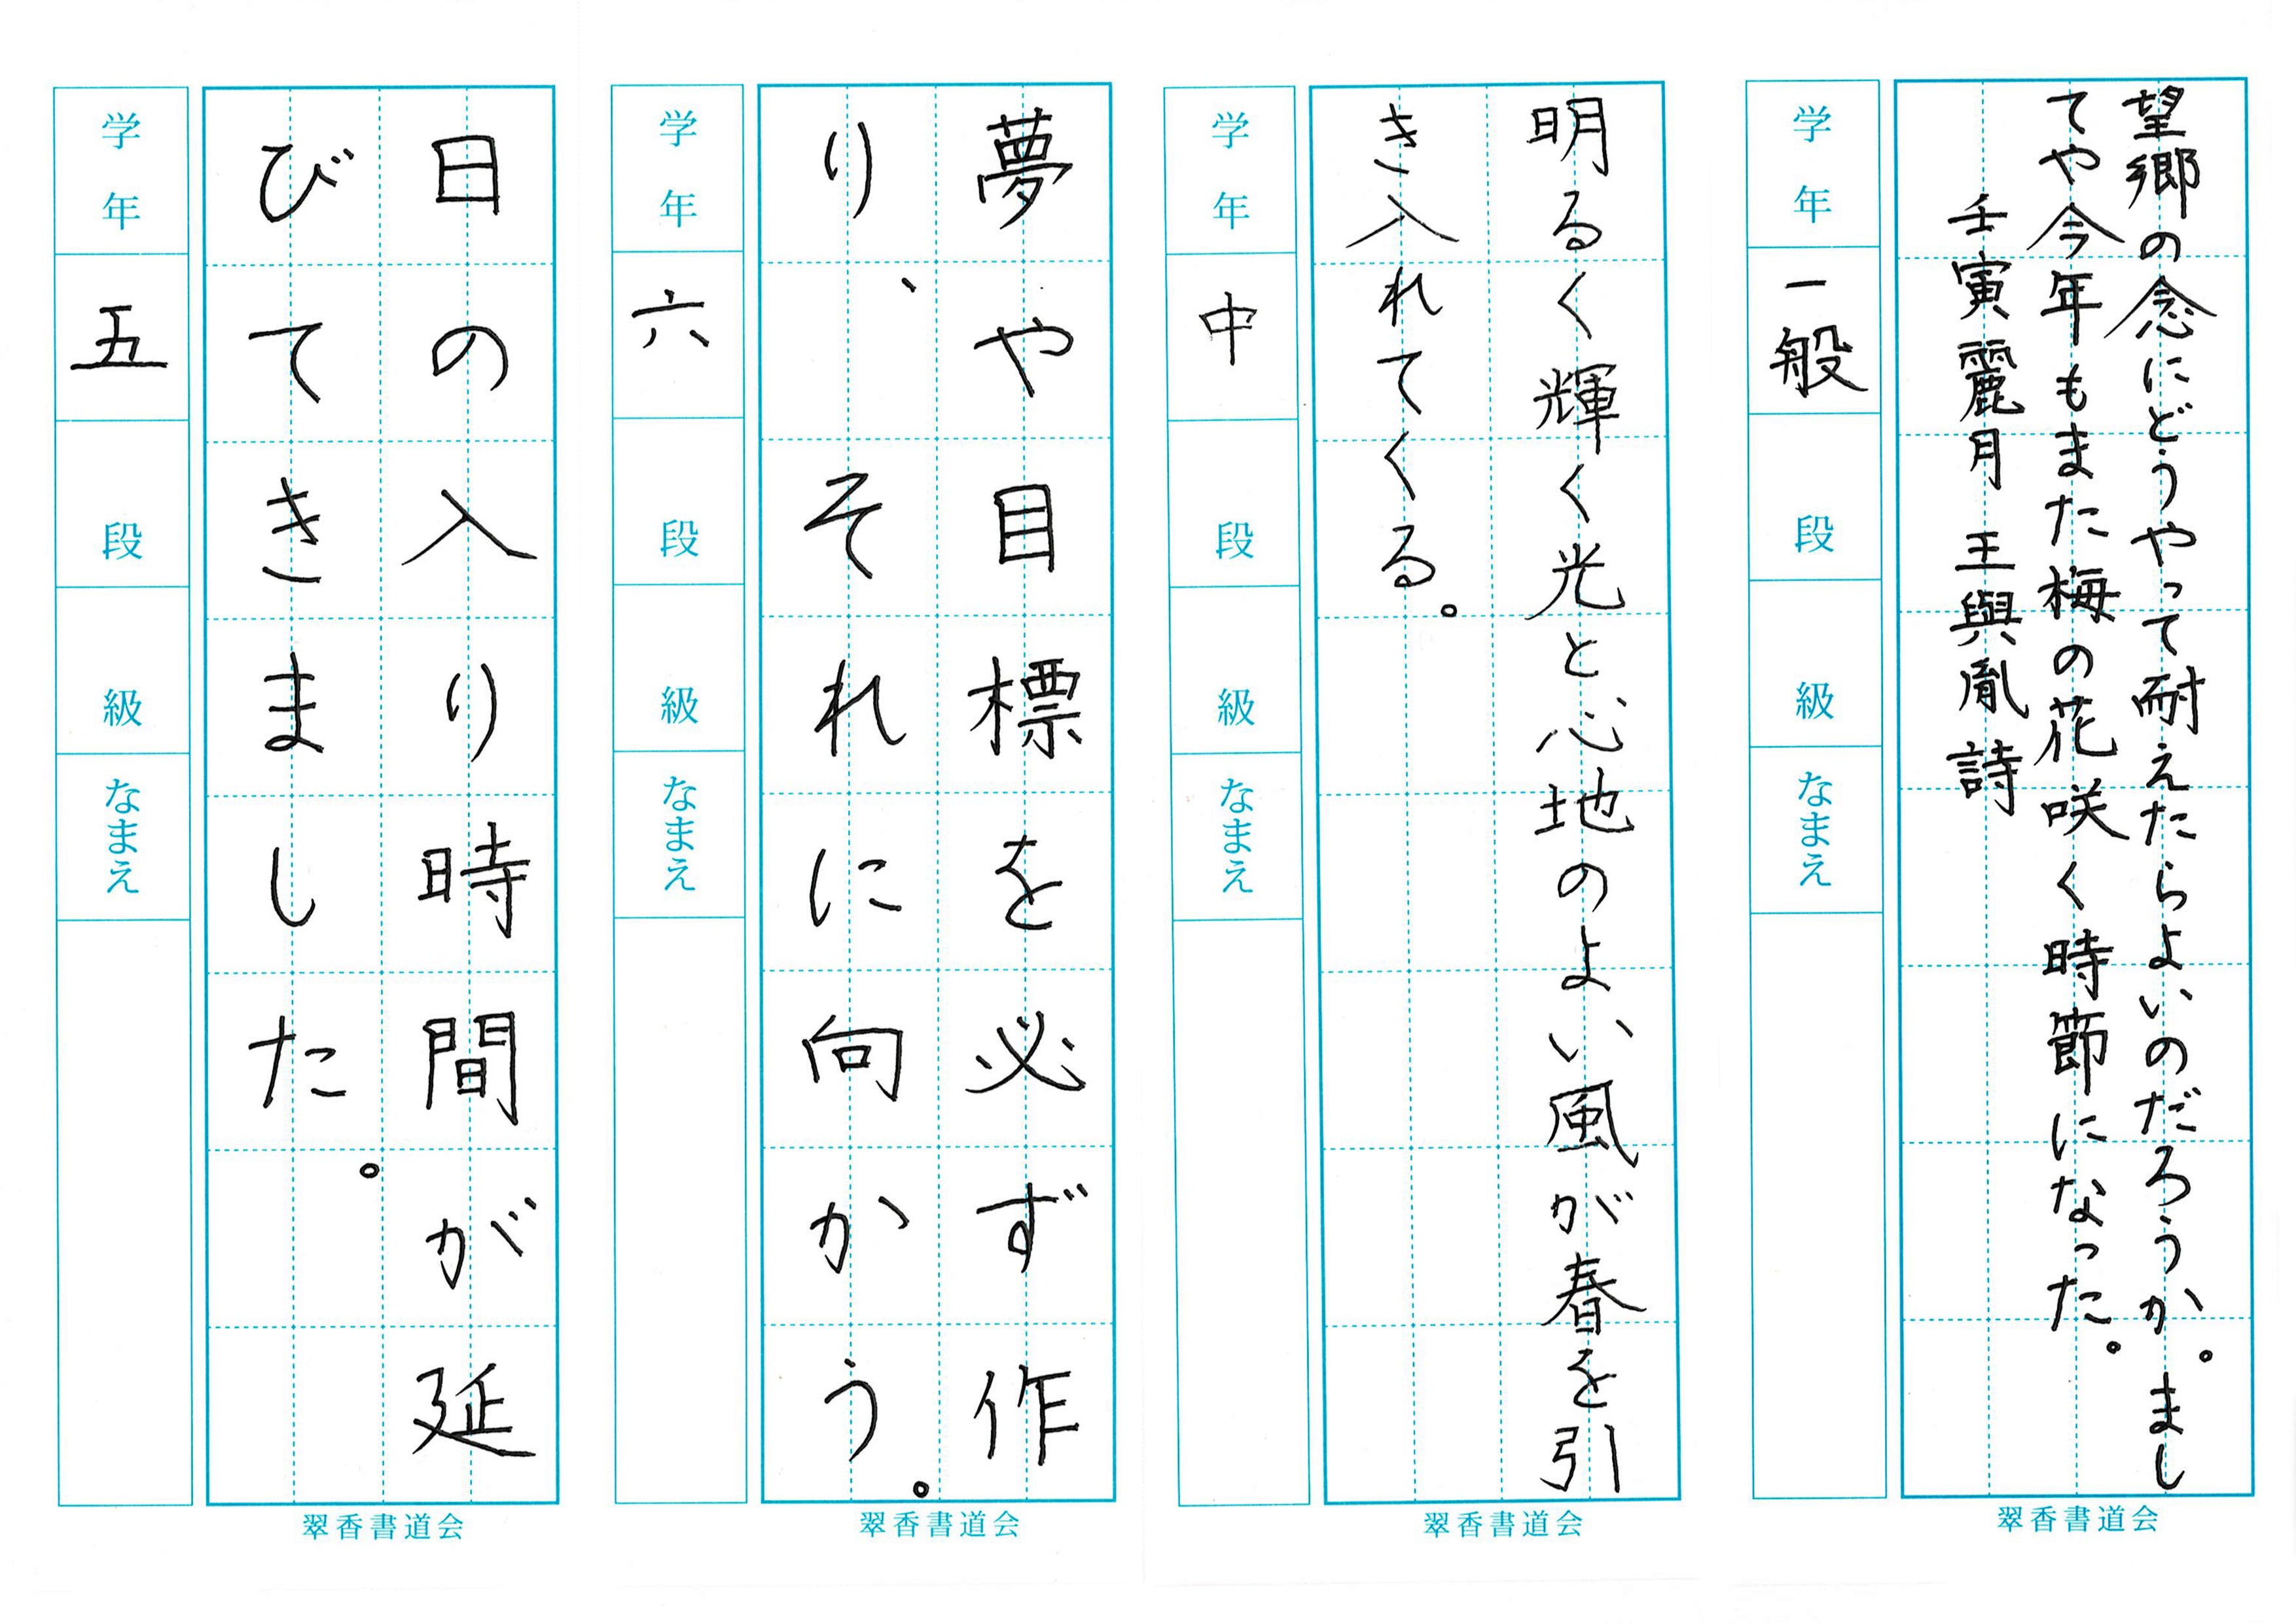 望郷の念にどうやって耐えたらよいのだろうか。まし
てや今年もまた梅の花咲く時節になった。
壬寅麗月 王與胤詩
学年
一般
段
級
なまえ
翠香書道会
明るく輝く光と心地のよい風が春を引
き入れてくる。
学年
中
段
級
なまえ
翠香書道会
夢や目標を必ず作
り、それに向かう。
学年
六
段
級
なまえ
翠香書道会
日の入り時間が延
びてきました。
学年
五
段
級
なまえ
翠香書道会